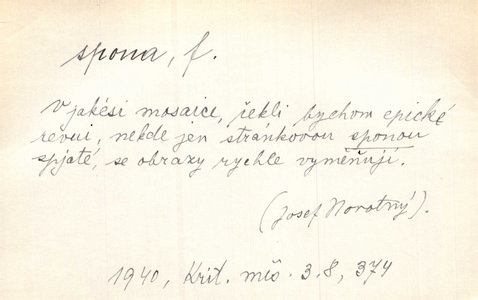 spona, f.
V jakési mosaice, řekli bychom epické
revui, někde jen stránkovou sponou
spjaté, se obrazy rychle vyměňují.
(Josef Novotný).
1940, Krit. měs. 3.8, 374